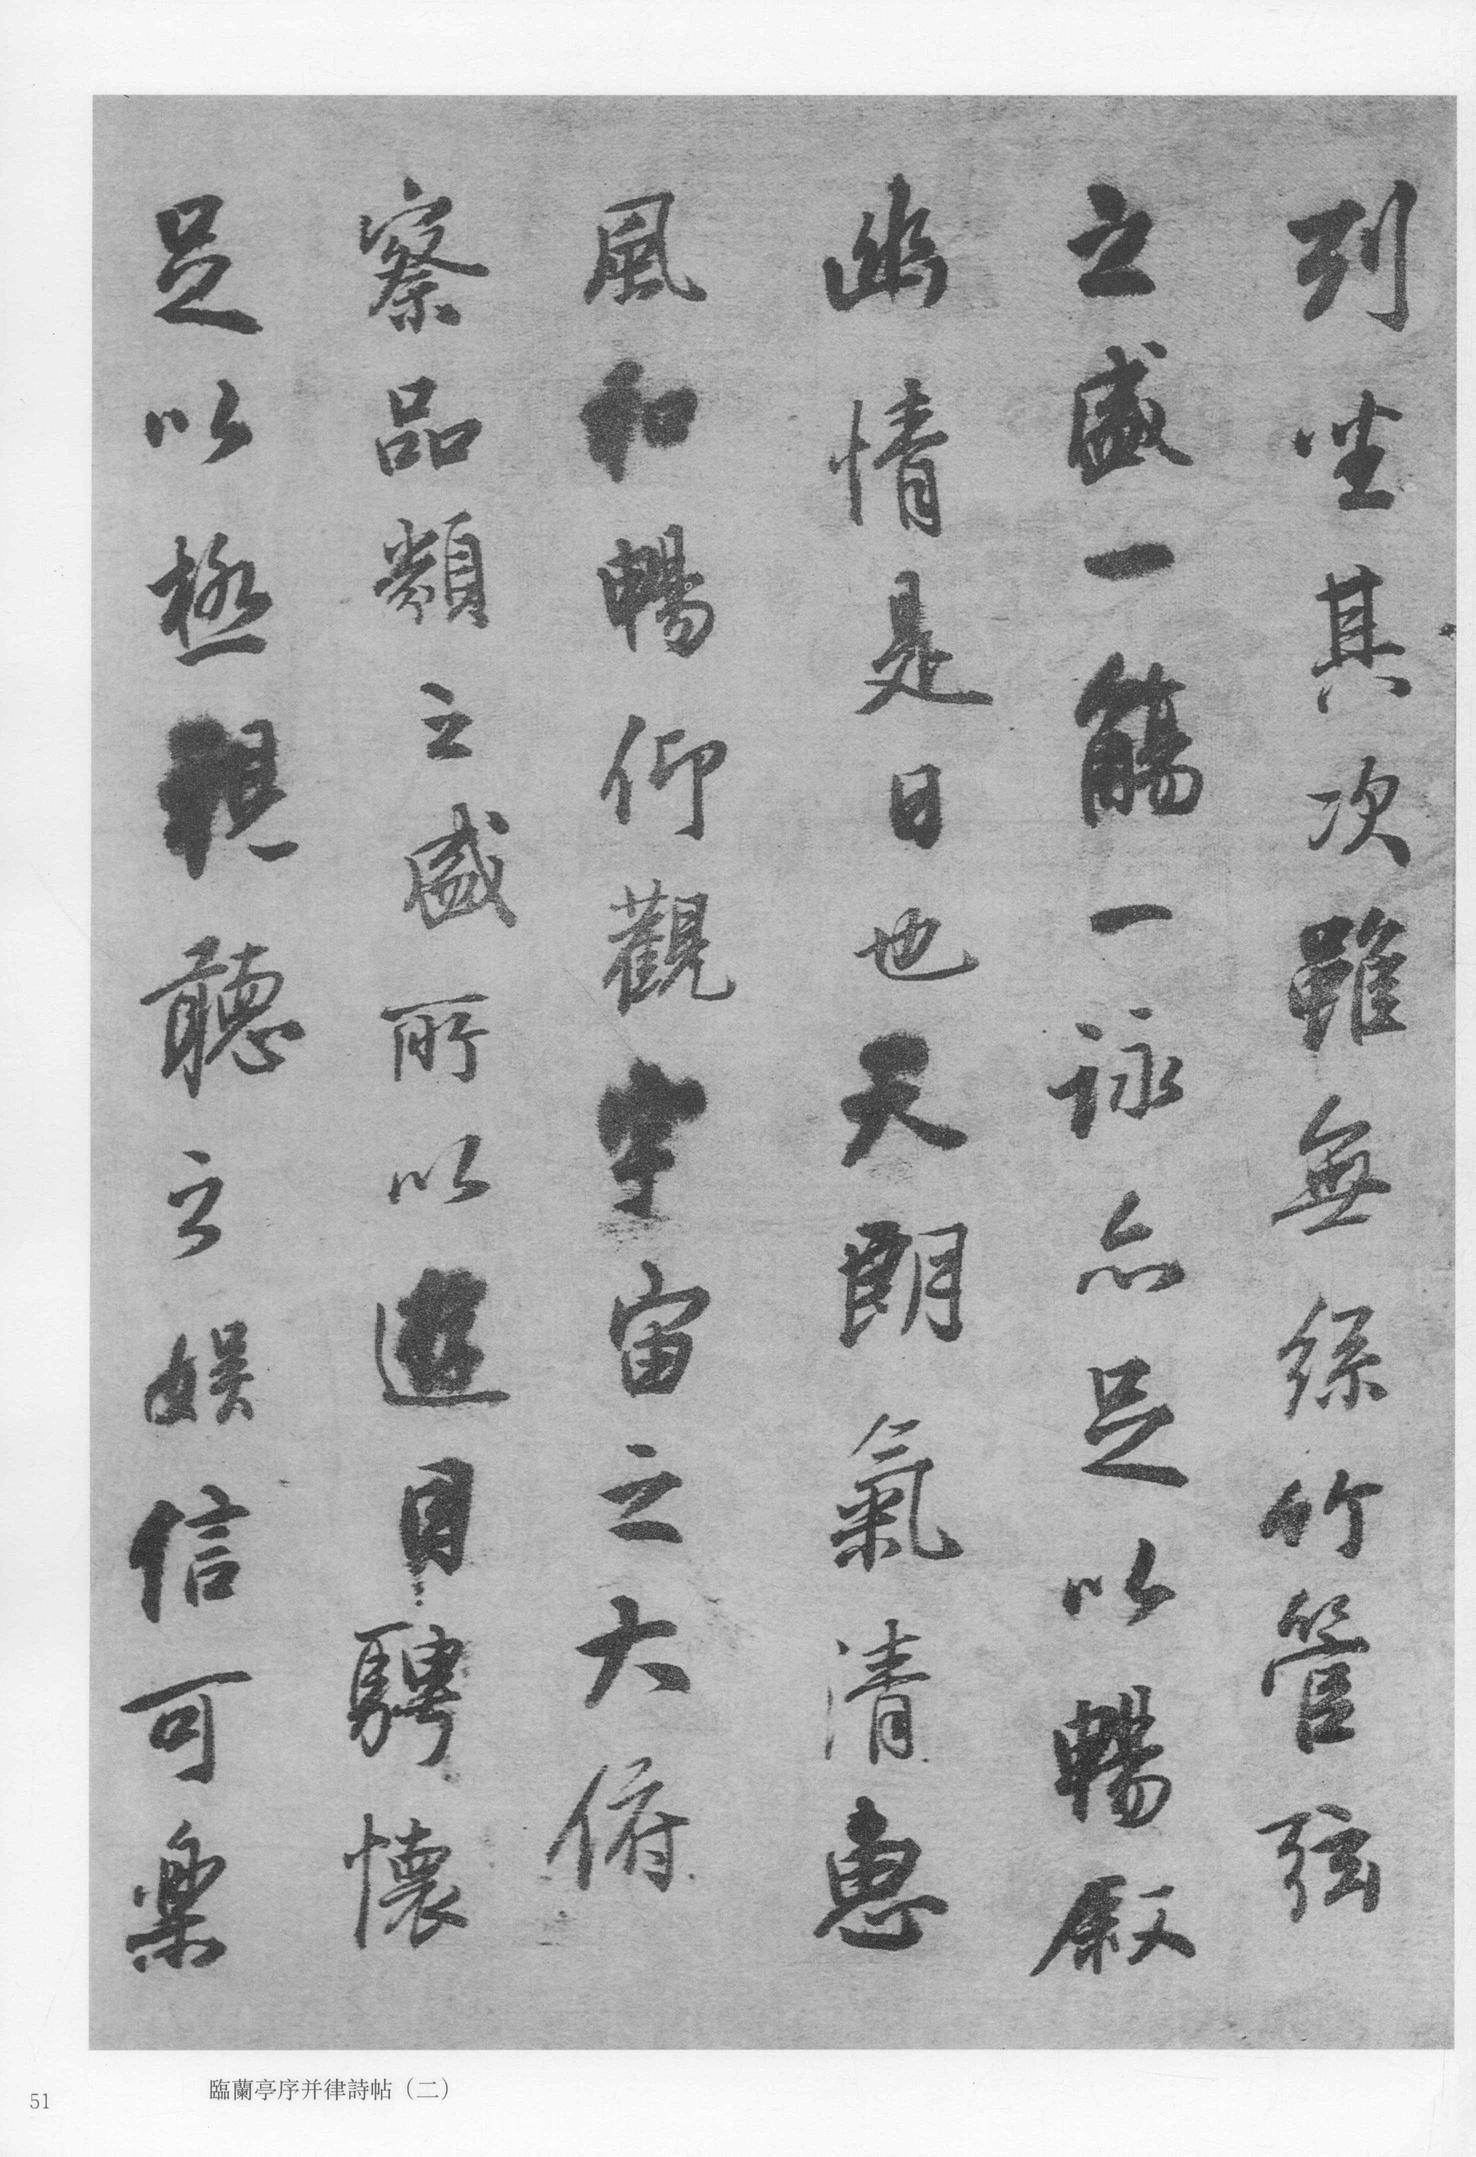 列坐其次雖無絲竹管弦
之盛一觴一詠亦足以暢敘
幽情是日也天朗氣清惠
風和暢仰觀宇宙之大俯
察品類之盛所以遊目騁懷
足以極視聽之娛信可樂
臨蘭亭序并律詩帖（二）
51